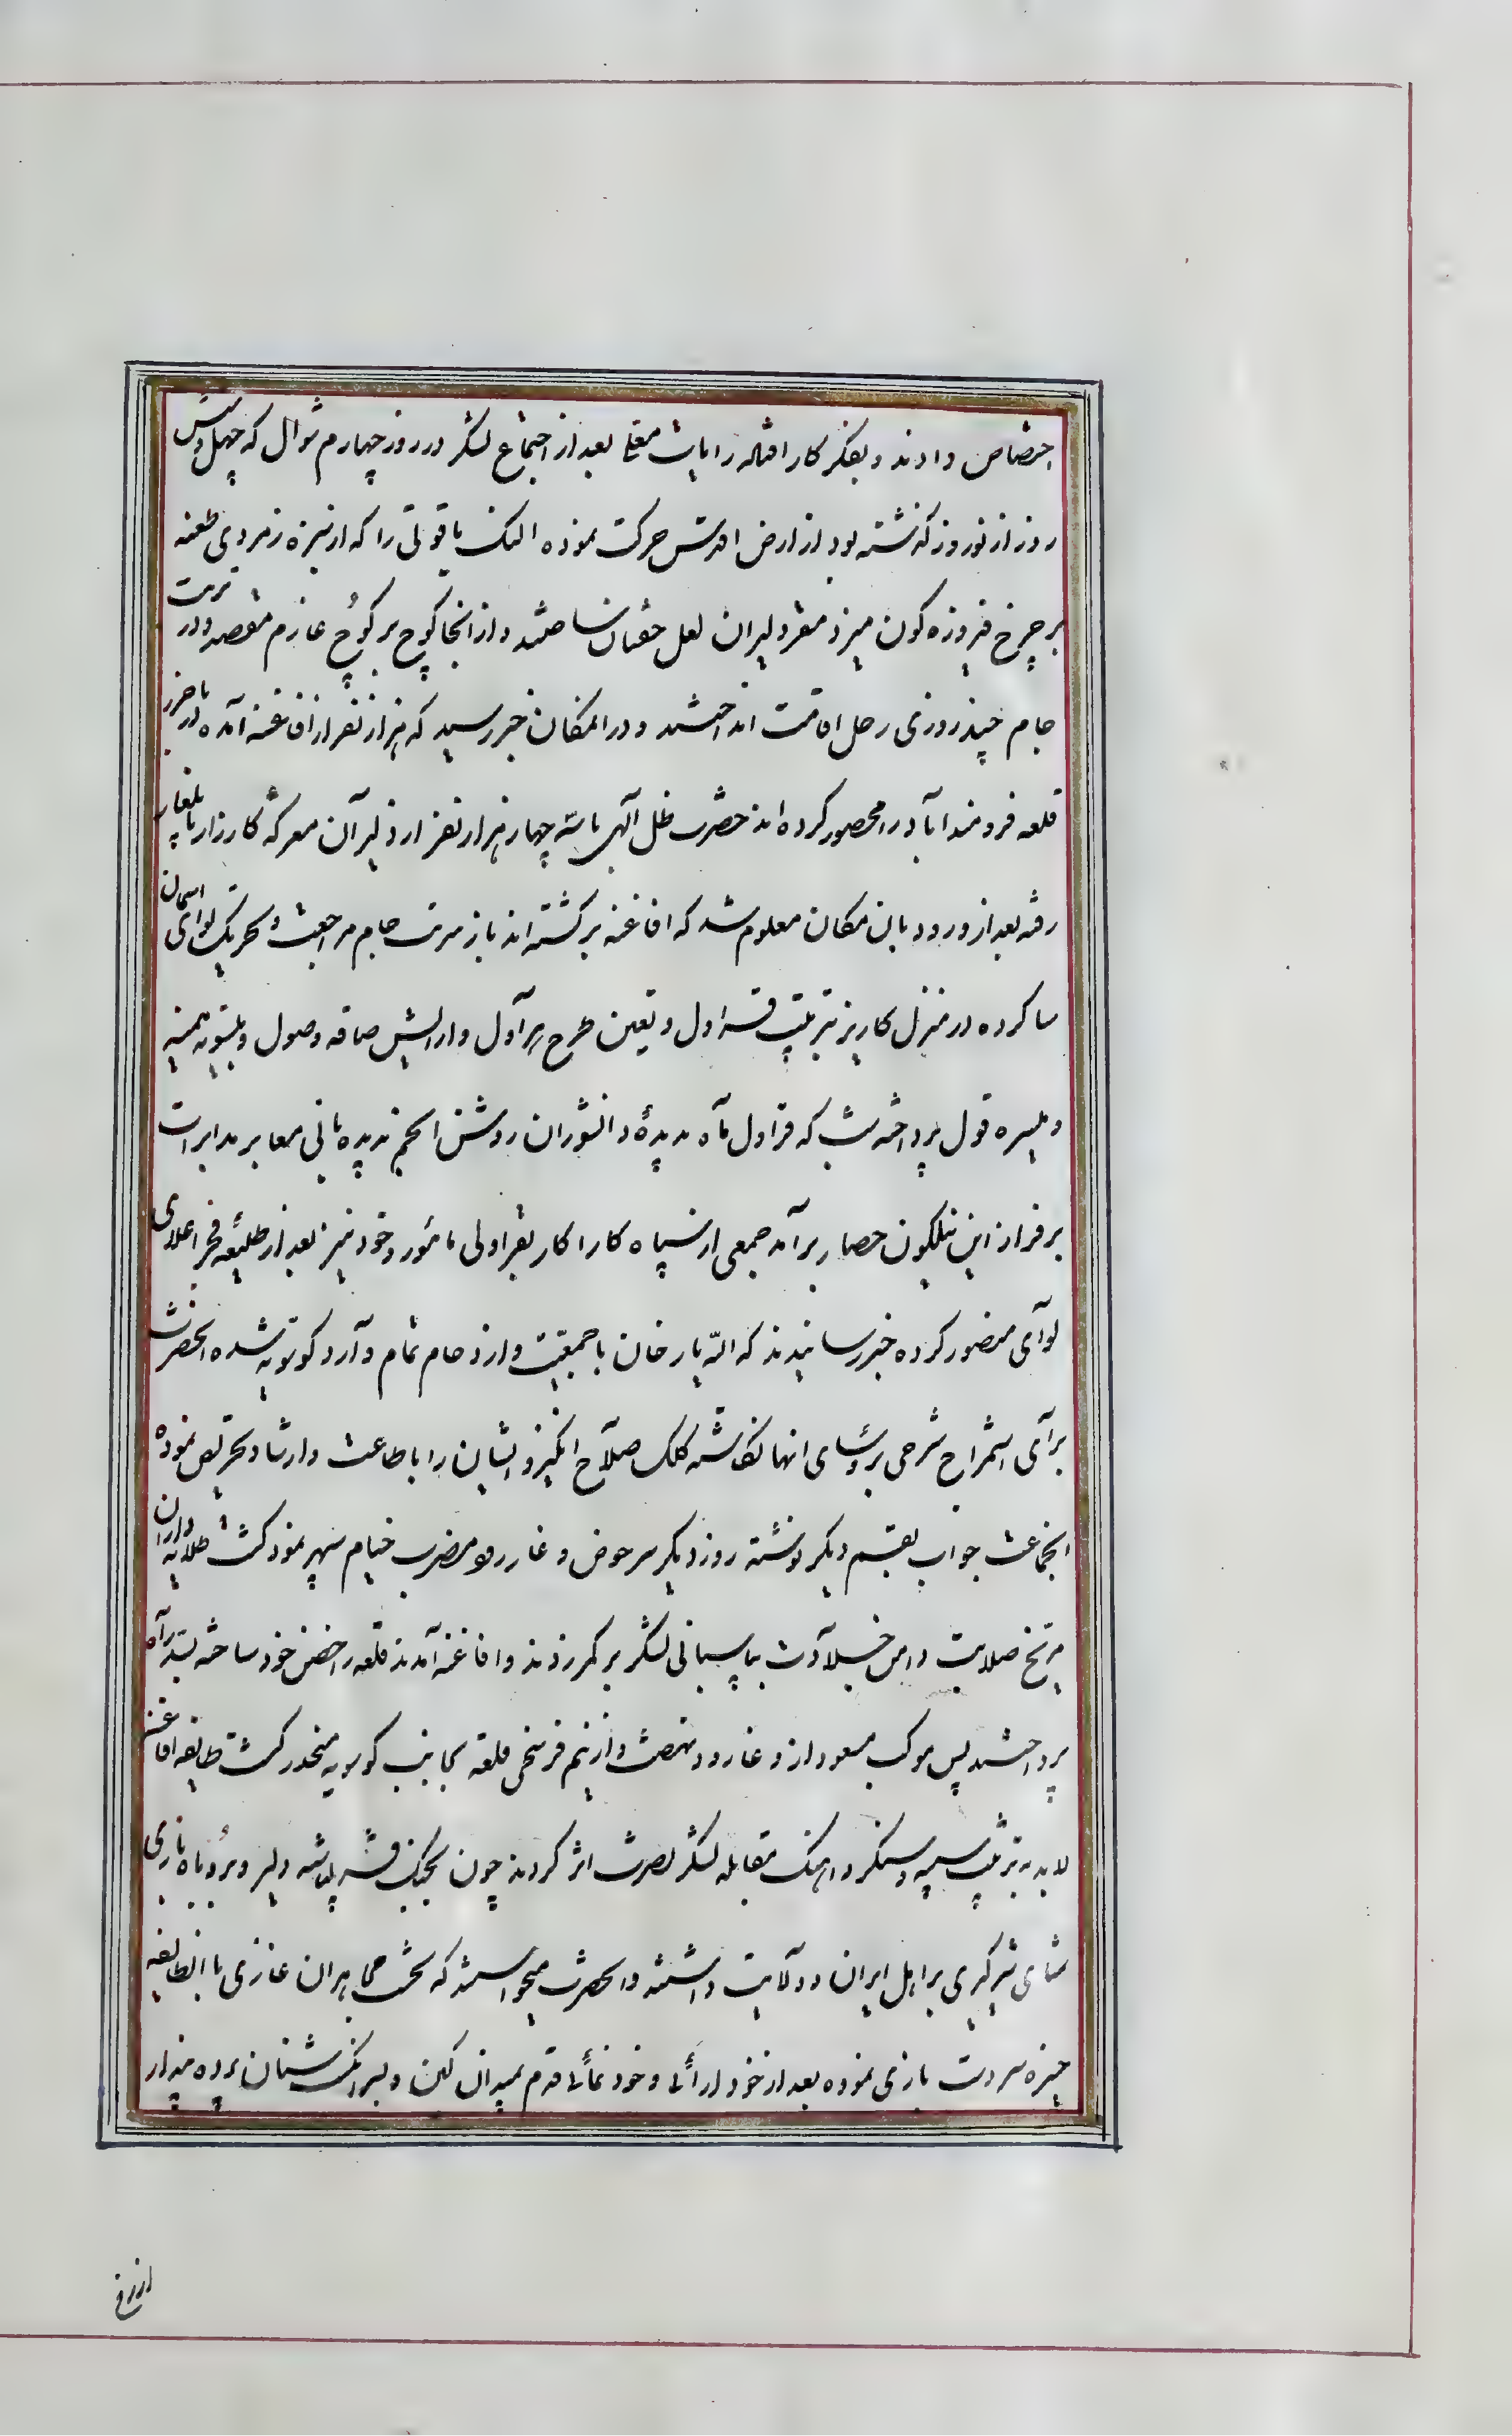 اختصاص دادند و بفکر کار افتاده رایات معلی بعد از اجتماع لشکر در روز چهارم شوال که چهل و شش
روز از نوروز گذشته بود از ارض اقدس حرکت نموده النک یاقوتی را که از سبزه زمردی طعنه
بر چرخ فیروزه کون میزد مقر دلیران لعل خفتان ساختند و از انجا کوچ بر کوچ عازم مقصد و در تربت
جام چند روزی رحل اقامت انداختند و در المکان خبر رسید که هزار نفر از افاغنه آمده در باخرز
قلعه فرومندآباد را محصور کرده اند حضرت ظل آلهی با سه چهار هزار نفر از دلیران معرکه کارزار بایلغار
رفته بعد از ورود بان مکان معلوم شد که افاغنه برگشته اند باز تربت جام مراجعت و تحریک لوای اسمان
سا کرده در منزل کاریز ترتیب قراول و تعین طرح هرآول و ارایش ساقه و صول و تسویه میمنه
و میسره قول پرداخته شب که قراول ماه بدیدهٔ دانشوران روشن انجم بدیده بانی معابر مدارات
بر فراز این نیلگون حصار برآمد جمعی از سپاه کارا کار بقراولی مامور و خود نیز بعد از طلیعه فجر اعلای
لوآی منصور کرده خبر رسانیدند که الله یار خان با جمعیت و ازدحام تمام وآرد کوسویه شده انحضرت
برآی استمزاج شرحی برؤسای انها نگاشته کلک صلآح انگیز و ایشان را باطاعت و ارشاد تحریص نموده
انجماعت جواب بقسم دیگر نوشته روز دیگر سر حوض دغارود مضرب خیام سپهر نمود گشت طلایه داران
مریخ صلابت دامن جلآدت بپاسبانی لشکر بر کمر زدند و افاغنه آمدند قلعه را حصن خود ساخته بسد راه
پرداختند پس موکب مسعود از دغارود نهضت و از نیم فرسخی قلعه بجانب کوسویه منحدر گشت طایفه افاغنه
لابد به ترتیب سیبه و سنگر و اهنگ مقابله لشکر نصرت اثر کردند چون بجنگ قشه پیاشه دلیر و بروباه بازی
شنای شیرگیری بر اهل ایران دولآیت داشتند و انحضرت میخواستند که نخست مجاهدان غازی با انطایفه
چیره سر دست بازی نموده بعد از خود ارآئی و خود نمآئی قدم بمیدان کین و بسر انگشت سنان پرده پندار
از رخ